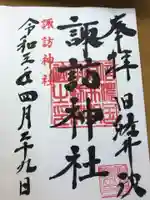 奉拝 旧軽井沢
諏訪神社
諏訪神社
令和三年四月二十九日